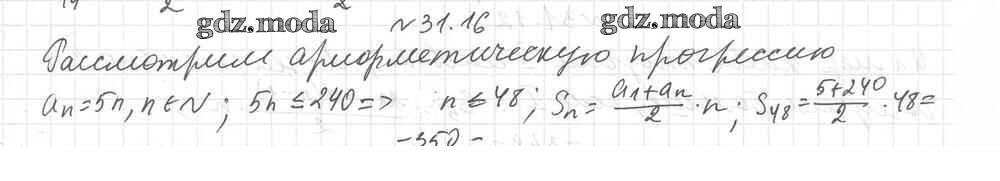 gdz.moda gdz.moda
№31.16
Рассмотрим арифметическую прогрессию
aₙ=5n, n∈N; 5n≤240=> n≤48; Sₙ=(a₁+aₙ)/2·n; S₄₈=(5+240)/2·48=